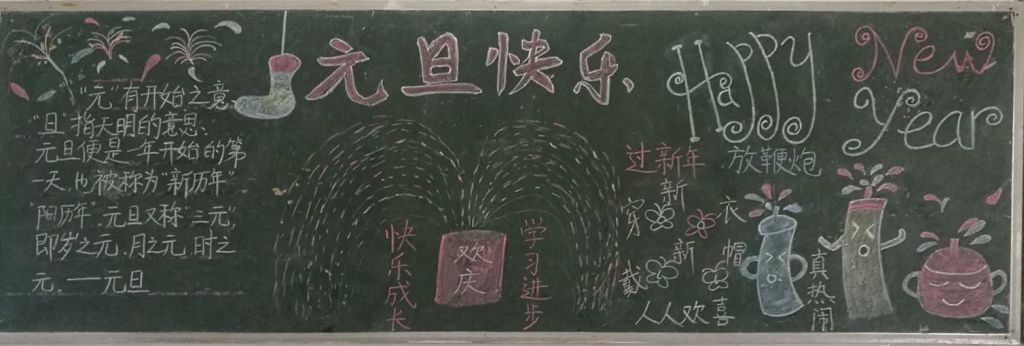 元旦快乐
Happy New Year
"元"有开始之意
"旦"指天明的意思、
元旦便是一年开始的第
一天.也被称为"新历年"
"阳历年".元旦又称"三元"
即岁之元.月之元.时之
元.——元旦
快乐成长
欢庆
学习进步
过新年 放鞭炮
穿新衣
戴新帽
人人欢喜
真热闹